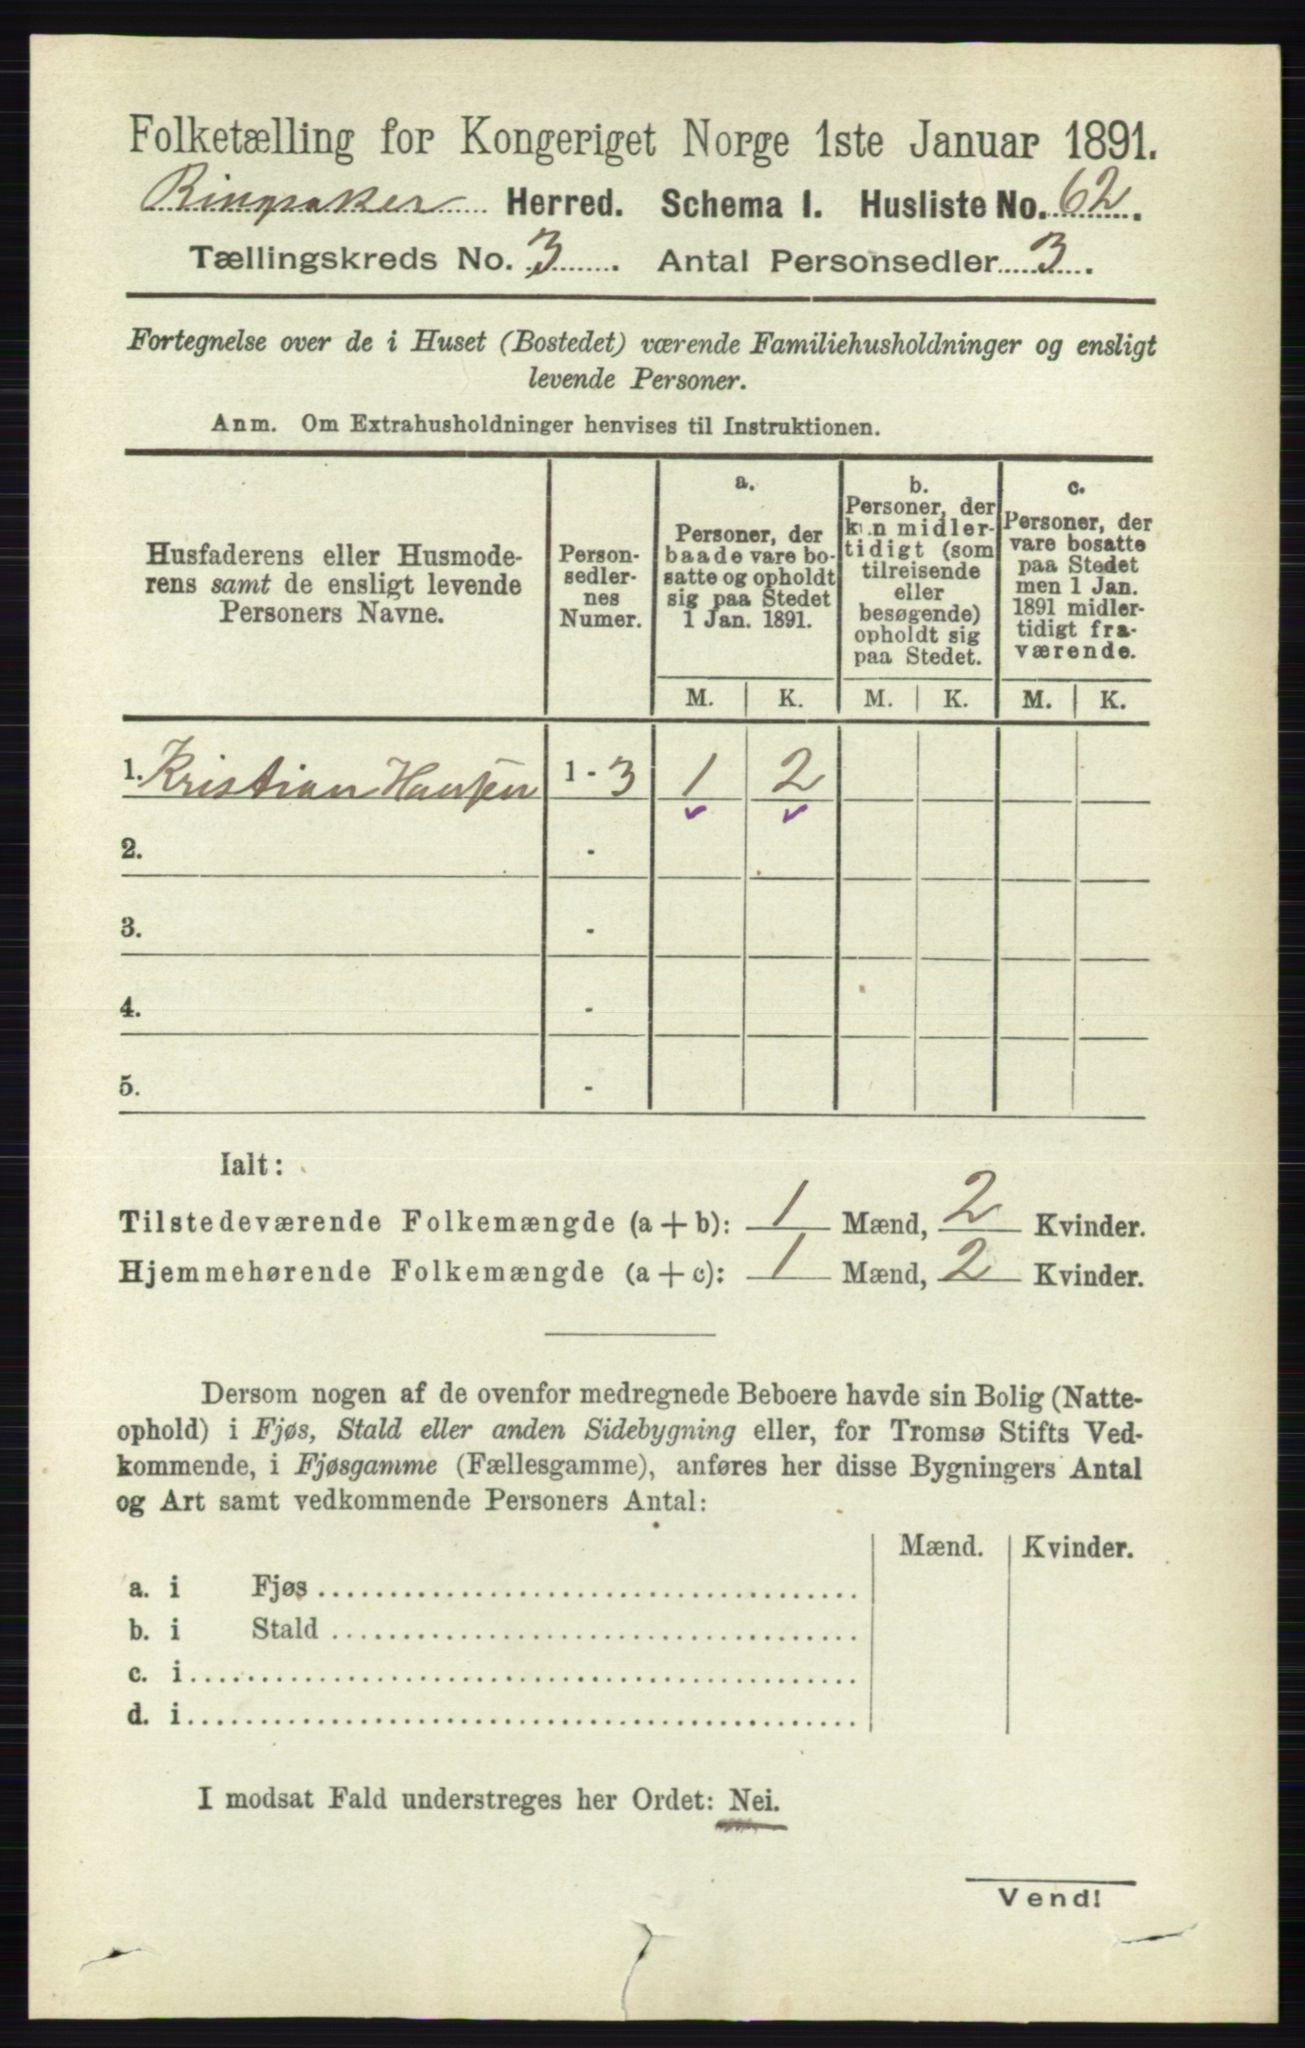 Folketælling for Kongeriget Norge 1ste Januar 1891.
Ringsaker Herred. Schema I. Husliste No. 62.
Tællingskreds No. 3. Antal Personsedler 3.
Fortegnelse over de i Huset (Bostedet) værende Familiehusholdninger og ensligt
levende Personer.
Anm. Om Extrahusholdninger henvises til Instruktionen.
Husfaderens eller Husmode-
rens samt de ensligt levende
Personers Navne.
Person-
sedler-
nes
Numer.
a.
Personer, der
baade vare bo-
satte og opholdt
sig paa Stedet
1 Jan. 1891.
b.
Personer, der
kun midler-
tidigt (som
tilreisende
eller
besøgende)
opholdt sig
paa Stedet.
c.
Personer, der
vare bosatte
paa Stedet
men 1 Jan.
1891 midler-
tidigt fra-
værende.
M. K. M. K. M. K.
1. Kristian Hansen 1 - 3 1 2
2. -
3. -
4. -
5. -
Ialt:
Tilstedeværende Folkemængde (a + b): 1 Mænd, 2 Kvinder.
Hjemmehørende Folkemængde (a + c): 1 Mænd, 2 Kvinder.
Dersom nogen af de ovenfor medregnede Beboere havde sin Bolig (Natte-
ophold) i Fjøs, Stald eller anden Sidebygning eller, for Tromsø Stifts Ved-
kommende, i Fjøsgamme (Fællesgamme), anføres her disse Bygningers Antal
og Art samt vedkommende Personers Antal:
Mænd. Kvinder.
a. i Fjøs
b. i Stald
c. i
d. i
I modsat Fald understreges her Ordet: Nei.
Vend!